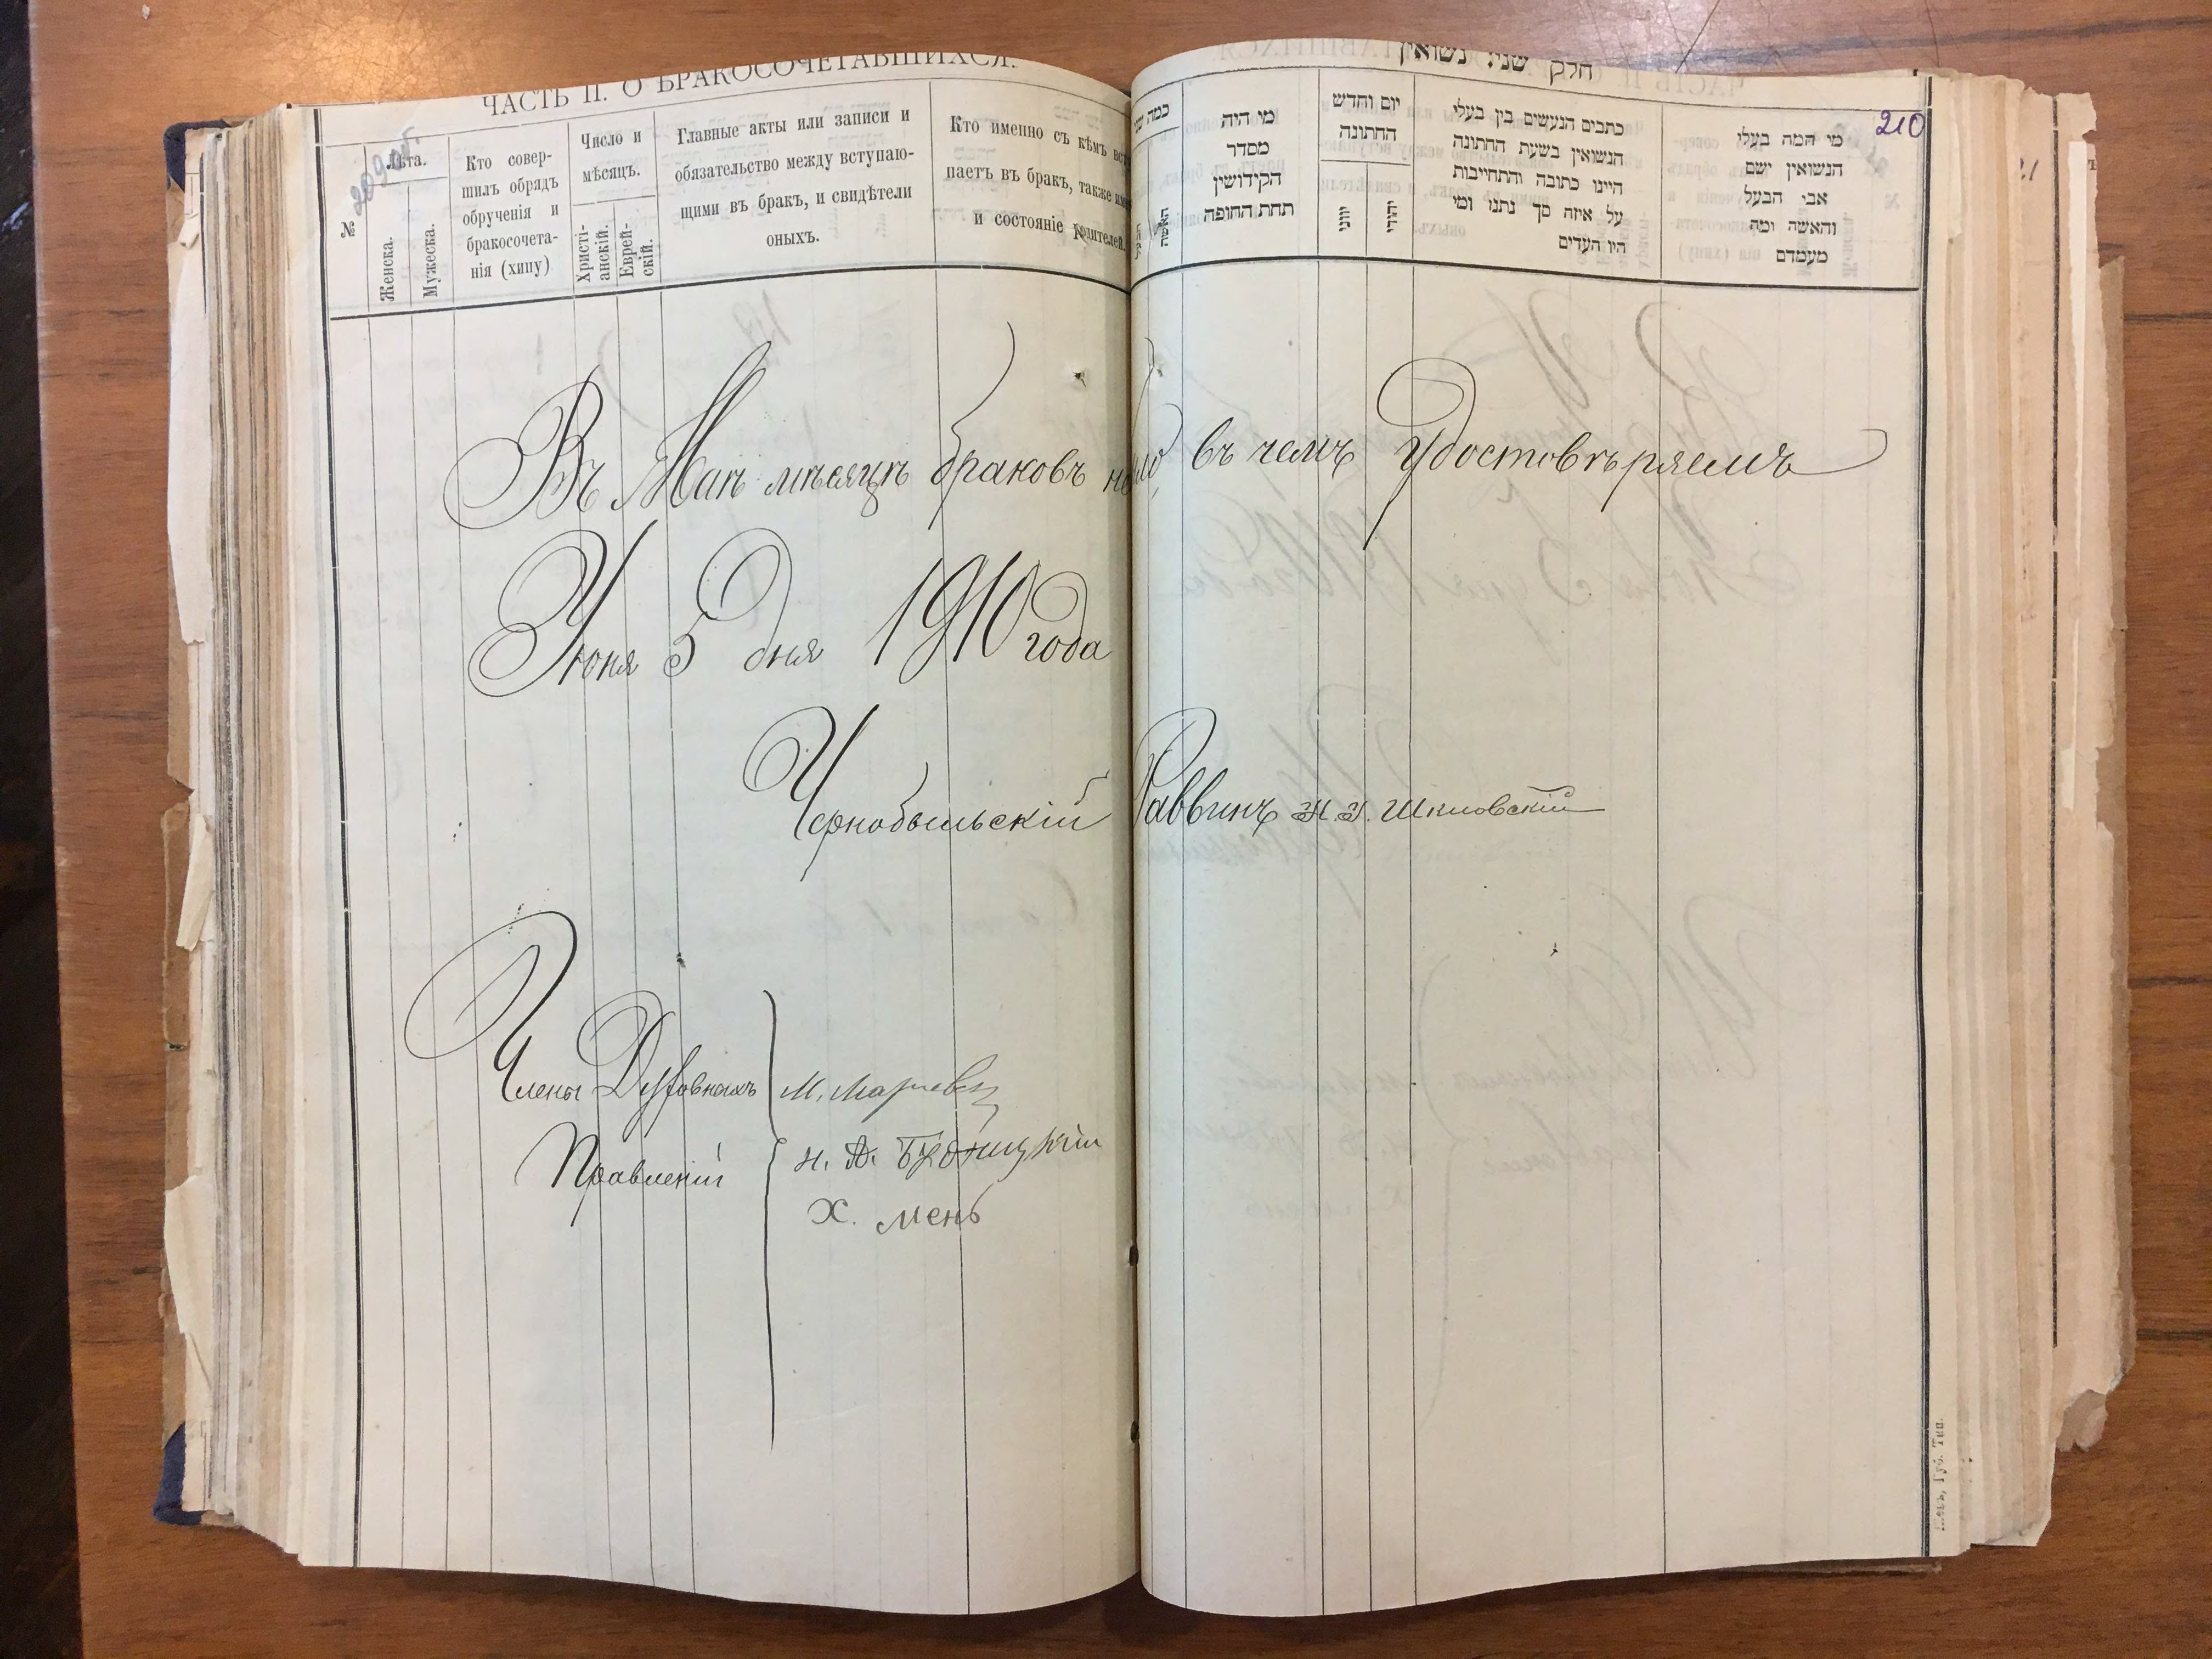 ЧАСТЬ II. О БРАКОСОЧЕТАВШИХСЯ.
№
Лѣта.
Женска.
Мужеска.
Кто совер-
шилъ обрядъ
обрученія и
бракосочета-
нія (хипу)
Число и
мѣсяцъ.
Христі-
анскій.
Еврей-
скій.
Главные акты или записи и
обязательство между вступаю-
щими въ бракъ, и свидѣтели
оныхъ.
Кто именно съ кѣмъ
паетъ въ бракъ, также
и состояніе родителей.
חלק שני נשואין
210
כמה
האשה
מי היה
מסדר
הקידושין
תחת החופה
יום וחדש
החתונה
יווני
יהודי
כתבים הנעשים בין בעלי
הנשואין בשעת החתונה
היינו כתובה והתחייבות
על איזה סך נתנו ומי
היו העדים
מי המה בעלי
הנשואין ישם
אבי הבעל
והאשה ומה
מעמדם
Въ Маѣ мѣсяцѣ браковъ не было въ чемъ удостовѣряемъ
Іюня 5 дня 1910 года
Чернобыльскій Раввинъ Шкловскій
Члены Духовныхъ
Правленій
М.
Н. Будницкій
Х. Мень
Губ. Тип.